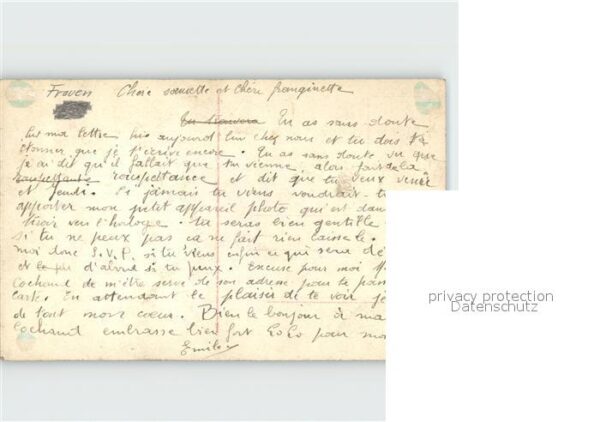 Frauen Chère sœurette et chère franginette
Tu as sans doute
lu ma lettre hier aujourd'hui chez nous et tu dois
étonner que je t'écrive encore. Tu as sans doute vu que
je ai dit qu'il fallait que tu vienne, alors fait de la
rouspettance et dit que tu veux venir
et jeudi. Si jamais tu viens voudrait-
apporter mon petit appareil photo qui est dans
tiroir vers l'horloge. tu seras bien gentille
si tu ne peux pas ca ne fait rien laisse le.
moi donc S.V.P. si tu viens enfin ce qui sera dé
et d'abord si tu peux. Excuse pour moi
Cochand de m'être servi de son adresse pour te
carte. En attendant le plaisir de te voir je
de tout mon cœur. Bien le bonjour à ma
Cochand embrasse bien fort LoLo pour mo
Emile
privacy protection
Datenschutz